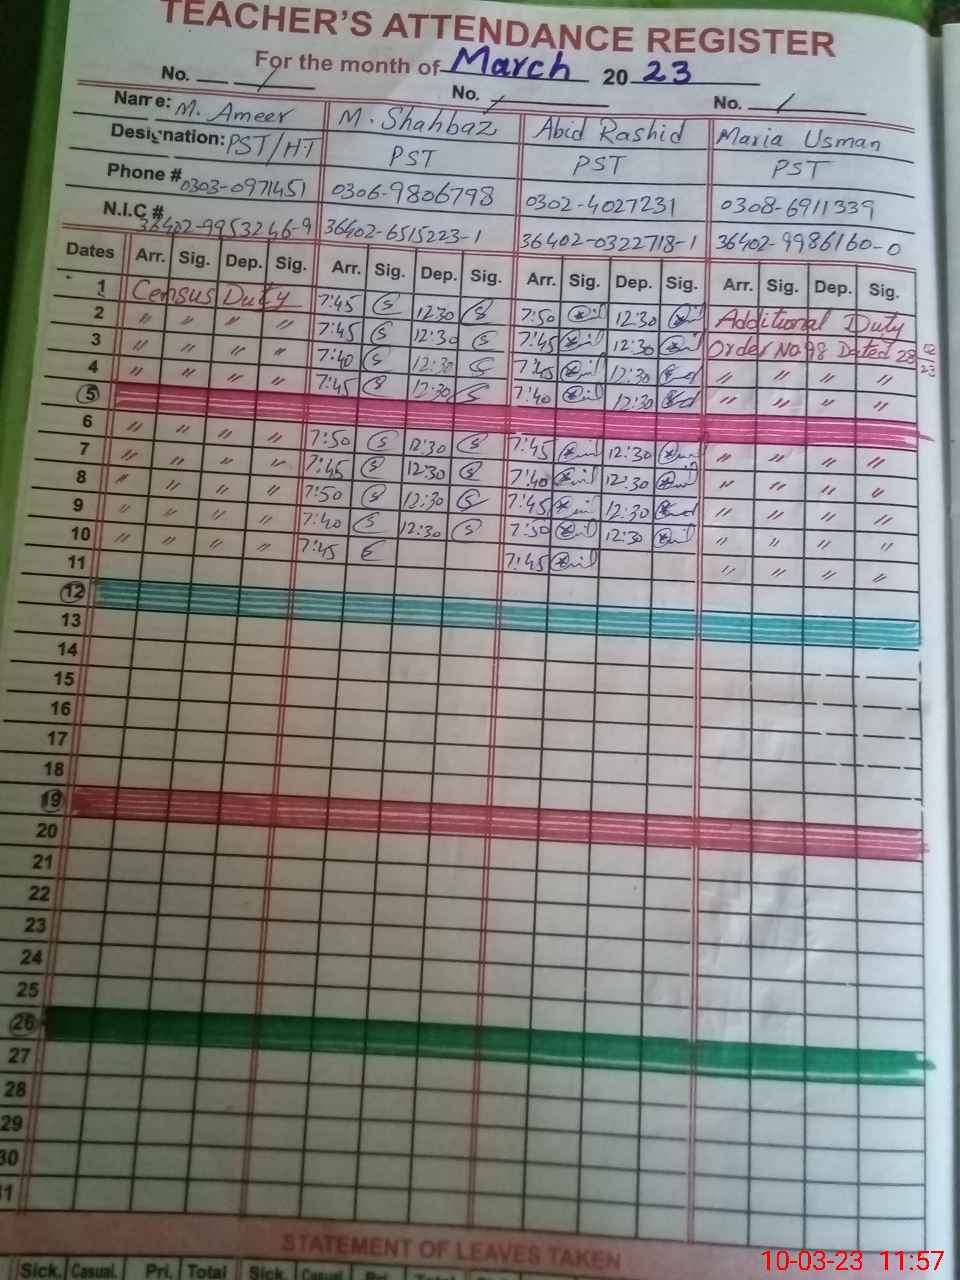 TEACHER'S ATTENDANCE REGISTER
For the month of March 20 23
No. / No. / No. /
Name: M. Ameer M. Shahbaz Abid Rashid Maria Usman
Designation: PST/HT PST PST PST
Phone # 0303-0971451 0306-9806798 0302-4027231 0308-6911339
N.I.C # 36402-9953246-9 36402-6515223-1 36402-0322718-1 36402-9986160-0
Dates Arr. Sig. Dep. Sig. Arr. Sig. Dep. Sig. Arr. Sig. Dep. Sig. Arr. Sig. Dep. Sig.
1 Census Duty 7:45 S 12:30 S 7:50 12:30 Additional Duty
2 " " " " 7:45 S 12:30 S 7:45 12:30 Order No. 98 Dated 28 02 23
3 " " " " 7:40 S 12:30 S 7:45 12:30 " " " "
4 " " " " 7:45 S 12:30 S 7:40 12:30 " " " "
5
6 " " " " 7:50 S 12:30 S 7:45 12:30 " " " "
7 " " " " 7:45 S 12:30 S 7:40 12:30 " " " "
8 " " " " 7:50 S 12:30 S 7:45 12:30 " " " "
9 " " " " 7:40 S 12:30 S 7:50 12:30 " " " "
10 " " " " 7:45 7:45 " " " "
11
12
13
14
15
16
17
18
19
20
21
22
23
24
25
26
27
28
29
30
31
STATEMENT OF LEAVES TAKEN
Sick. Casual. Pri. Total Sick. Casual Pri. Total Sick.
10-03-23 11:57